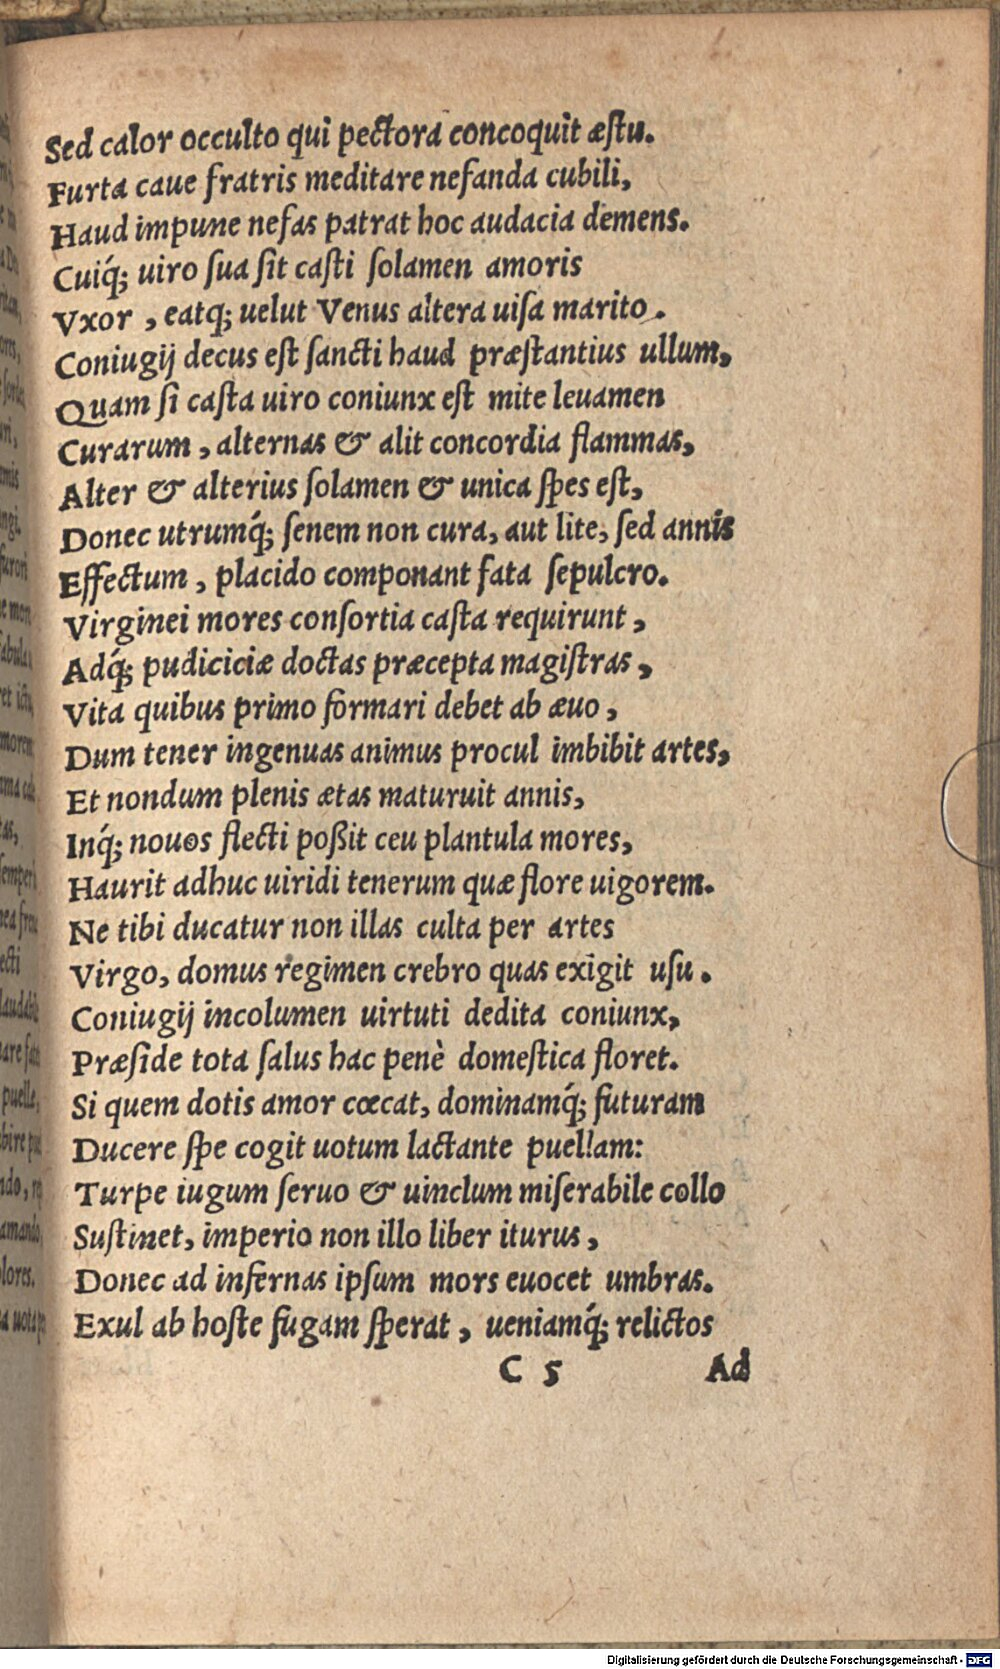 Sed calor occulto qui pectora concoquit æſtu.
Furta caue fratris meditare nefanda cubili,
Haud impune nefas patrat hoc audacia demens.
Cuiq́; uiro ſua ſit caſti ſolamen amoris
Vxor, eatq; uelut Venus altera uiſa marito.
Coniugij decus eſt ſancti haud præſtantius ullum,
Quam ſi caſta uiro coniunx eſt mite leuamen
Curarum, alternas & alit concordia flammas,
Alter & alterius ſolamen & unica ſpes eſt,
Donec utrumq́; ſenem non cura, aut lite, ſed annis
Effectum, placido componant fata ſepulcro.
Virginei mores conſortia caſta requirunt,
Adq́; pudiciciæ doctas præcepta magiſtras,
Vita quibus primo formari debet ab æuo,
Dum tener ingenuas animus procul imbibit artes,
Et nondum plenis ætas maturuit annis,
Inq́; nouos flecti poßit ceu plantula mores,
Haurit adhuc uiridi tenerum quæ flore uigorem.
Ne tibi ducatur non illas culta per artes
Virgo, domus regimen crebro quas exigit uſu.
Coniugij incolumen uirtuti dedita coniunx,
Præſide tota ſalus hac penè domeſtica floret.
Si quem dotis amor cœcat, dominamq́; futuram
Ducere ſpe cogit uotum lactante puellam:
Turpe iugum ſeruo & uinclum miſerabile collo
Suſtinet, imperio non illo liber iturus,
Donec ad infernas ipſum mors euocet umbras.
Exul ab hoſte fugam ſperat, ueniamq́; relictos
C 5 Ad
Digitalisierung gefördert durch die Deutsche Forschungsgemeinschaft - DFG